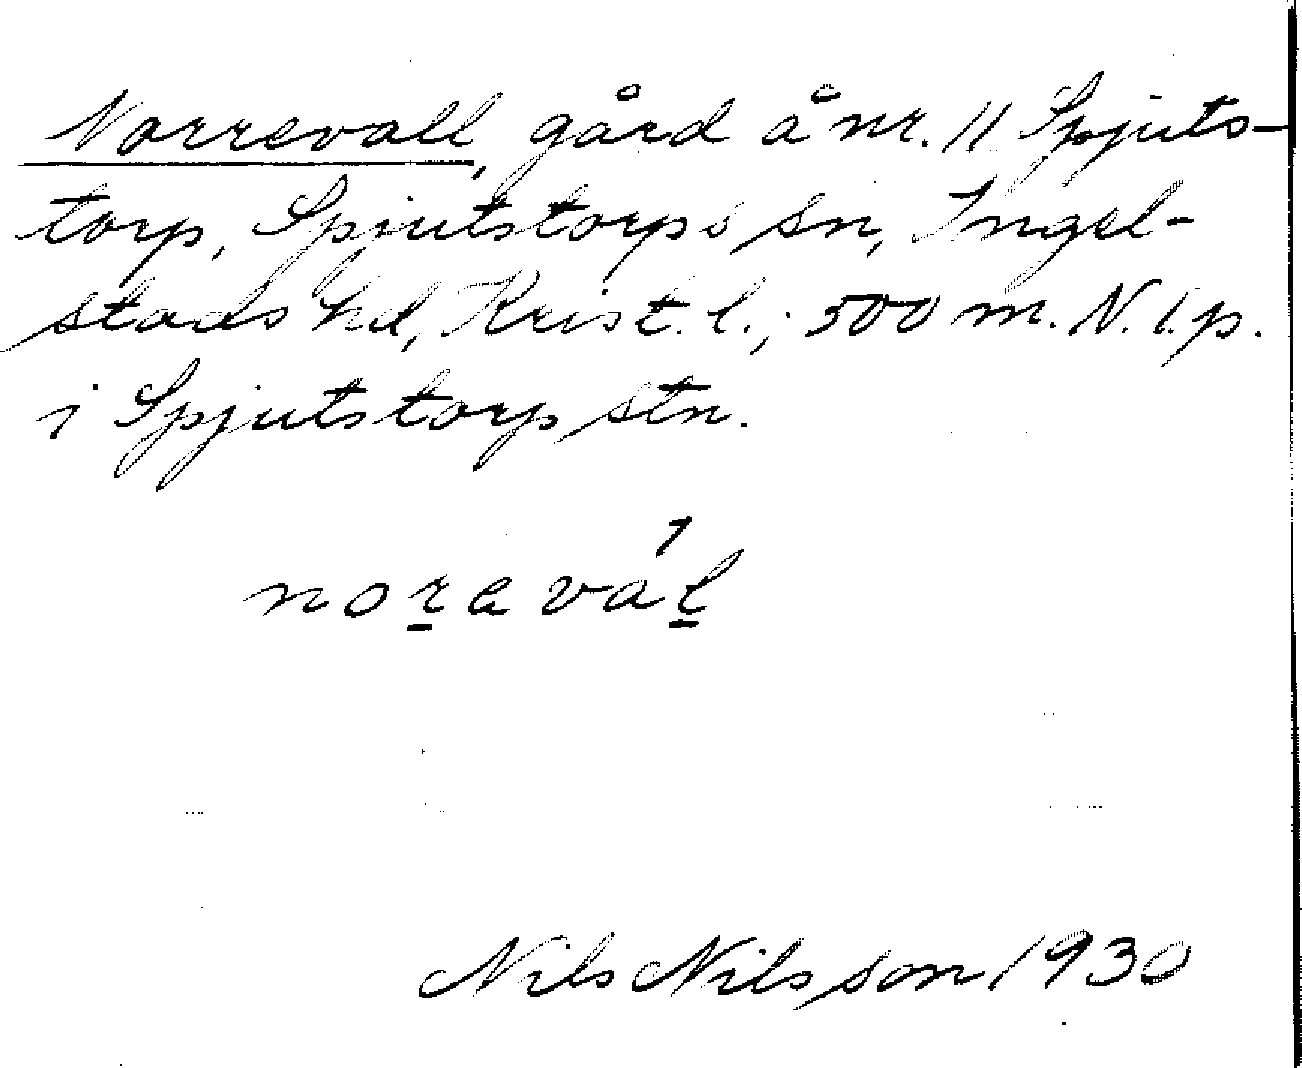 Norrevall, gård å nr. 11 Spjuts-
torp, Spjutstorps sn, Ingel-
stads hd, Krist. l.; 500 m. N. t. p.
i Spjutstorp stn.
noravál
Nils Nilsson 1930